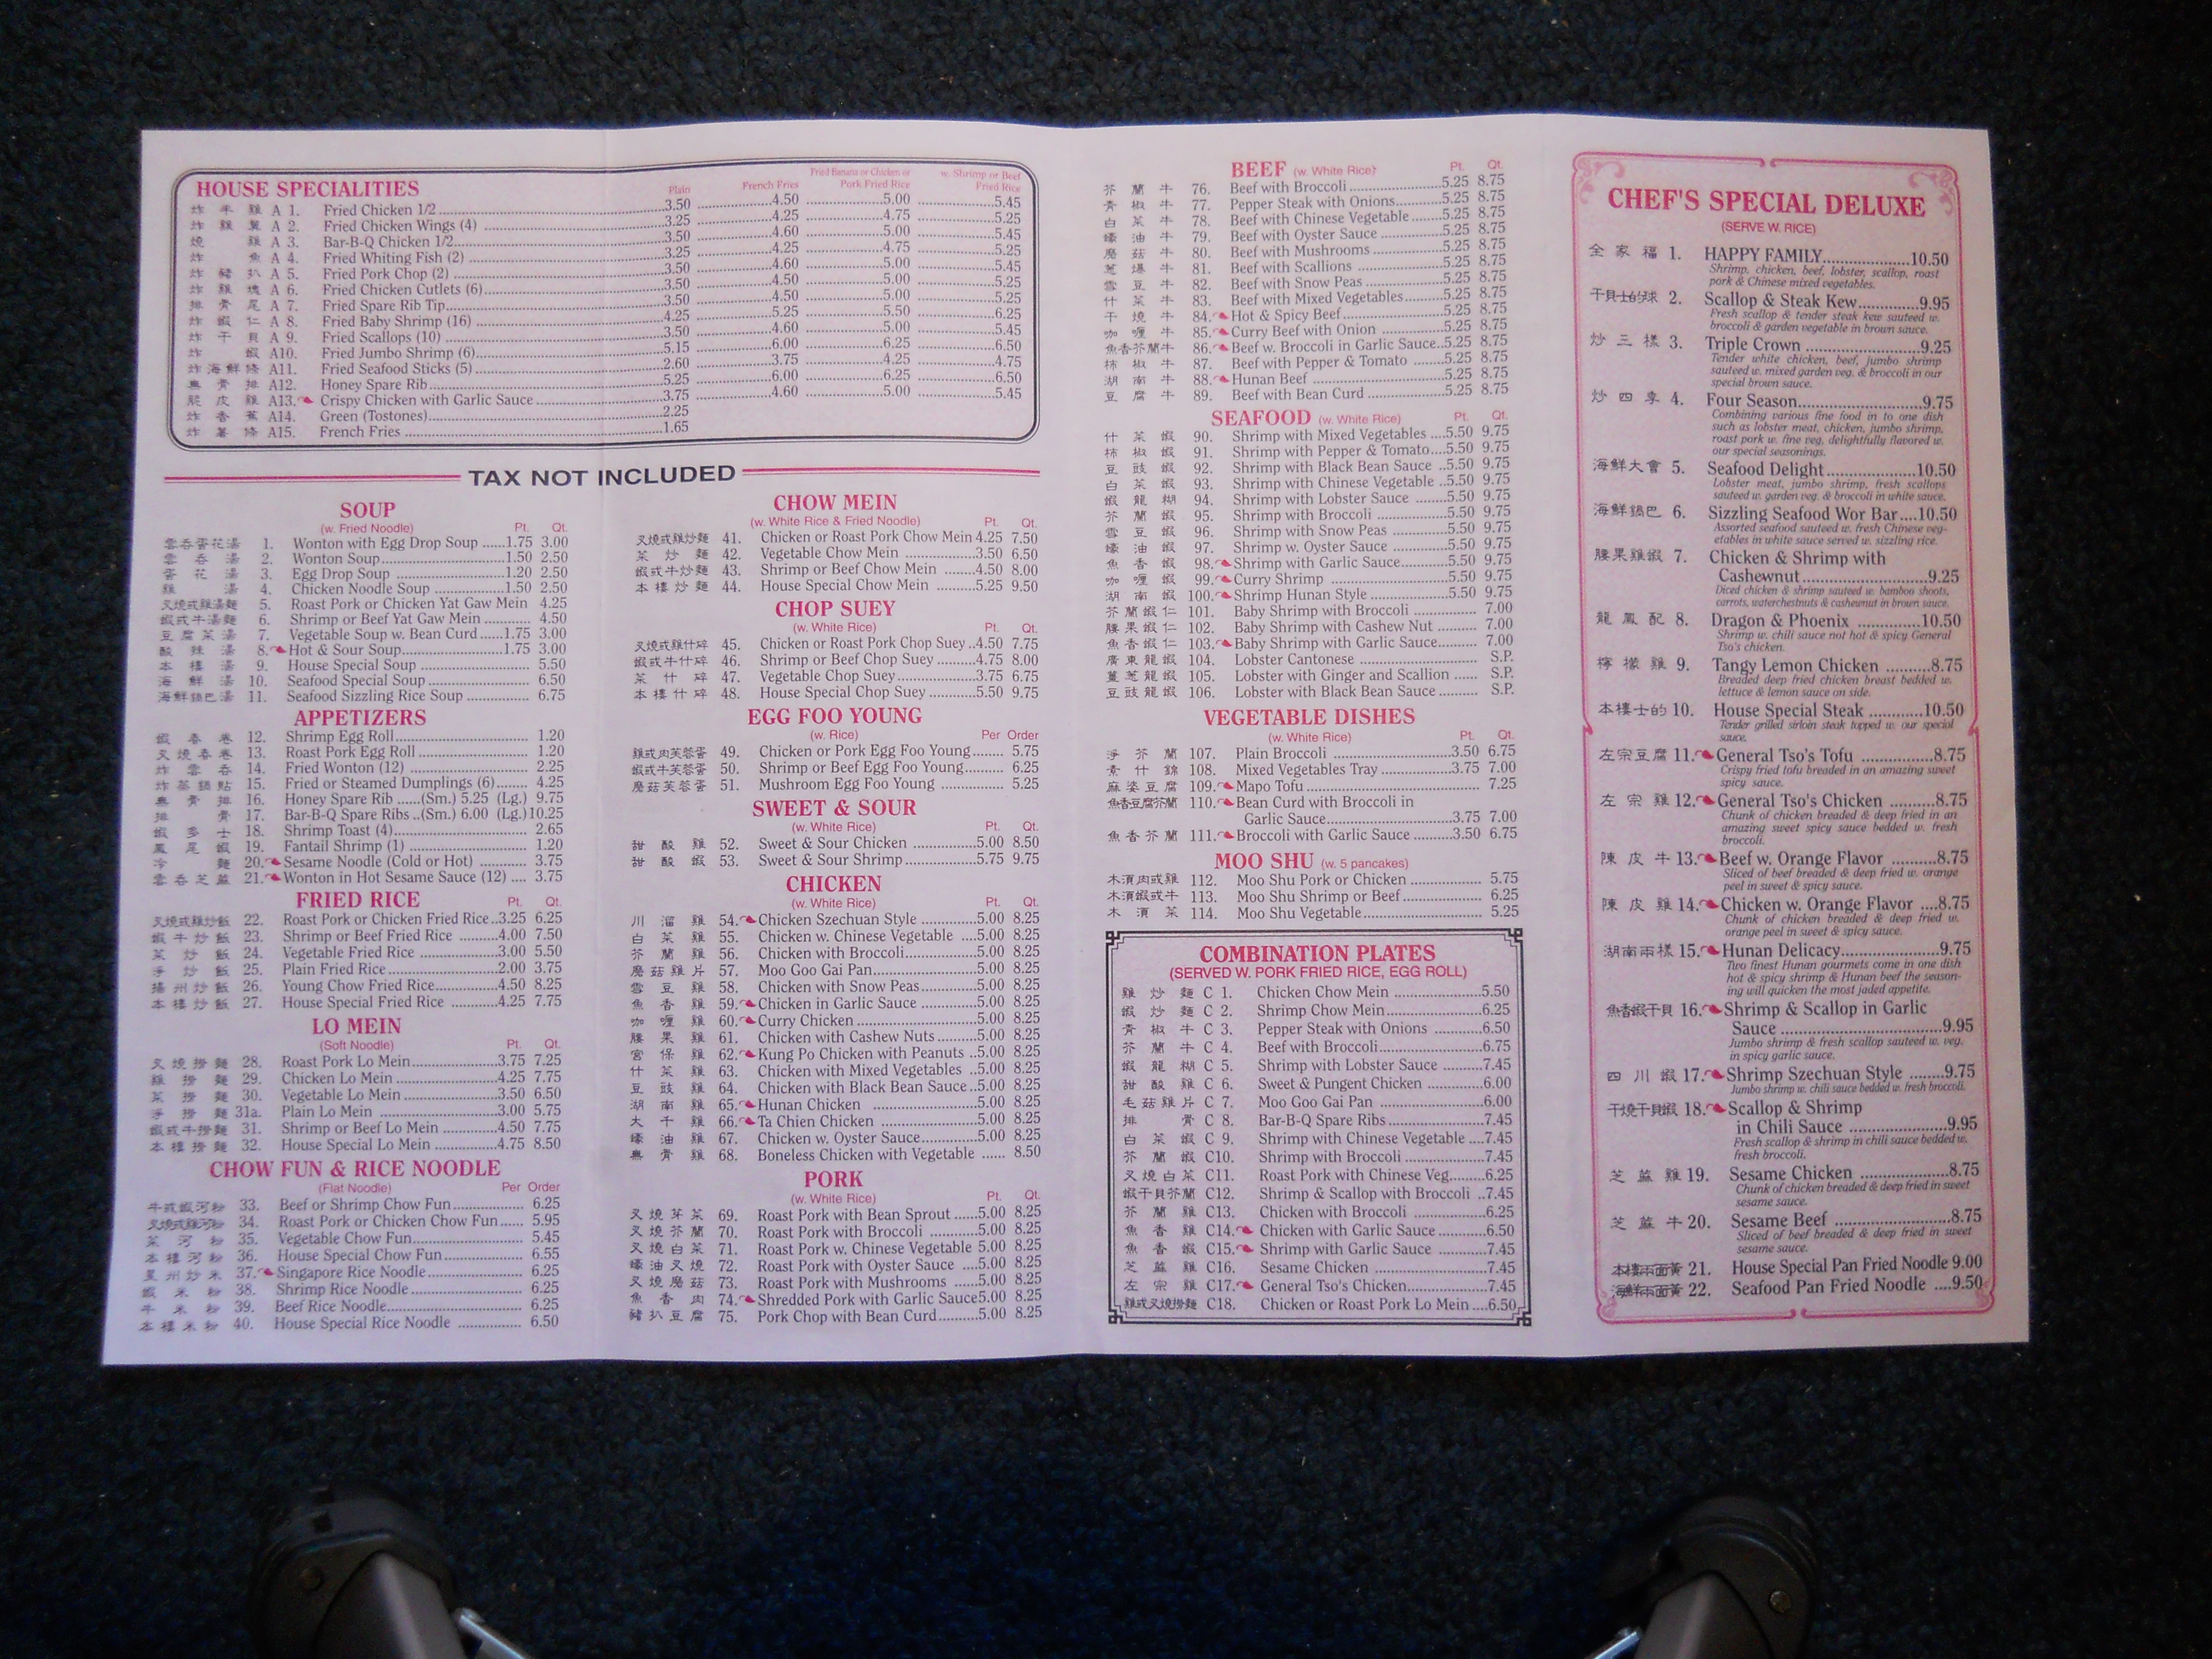 HOUSE SPECIALITIES
Plain French Fries Fried Banana or Chicken or Pork Fried Rice w. Shrimp or Beef Fried Rice
炸半雞 A 1. Fried Chicken 1/2 3.50 4.50 5.00 5.45
炸雞翼 A 2. Fried Chicken Wings (4) 3.25 4.25 4.75 5.25
燒雞 A 3. Bar-B-Q Chicken 1/2 3.50 4.60 5.00 5.45
炸魚 A 4. Fried Whiting Fish (2) 3.25 4.25 4.75 5.25
炸豬扒 A 5. Fried Pork Chop (2) 3.50 4.60 5.00 5.45
炸雞塊 A 6. Fried Chicken Cutlets (6) 3.50 4.50 5.00 5.25
排骨尾 A 7. Fried Spare Rib Tip 3.50 4.50 5.00 5.25
炸蝦仁 A 8. Fried Baby Shrimp (16) 4.25 5.25 5.50 6.25
炸干貝 A 9. Fried Scallops (10) 3.50 4.60 5.00 5.45
炸蝦 A10. Fried Jumbo Shrimp (6) 5.15 6.00 6.25 6.50
炸海鮮條 A11. Fried Seafood Sticks (5) 2.60 3.75 4.25 4.75
骨排 A12. Honey Spare Rib 5.25 6.00 6.25 6.50
脆皮雞 A13. Crispy Chicken with Garlic Sauce 3.75 4.60 5.00 5.45
炸香蕉 A14. Green (Tostones) 2.25
炸薯條 A15. French Fries 1.65
TAX NOT INCLUDED
SOUP
(w. Fried Noodle) Pt. Qt.
雲吞蛋花湯 1. Wonton with Egg Drop Soup 1.75 3.00
雲吞湯 2. Wonton Soup 1.50 2.50
蛋花湯 3. Egg Drop Soup 1.20 2.50
雞湯 4. Chicken Noodle Soup 1.50 2.50
叉燒或雞湯麵 5. Roast Pork or Chicken Yat Gaw Mein 4.25
蝦或牛湯麵 6. Shrimp or Beef Yat Gaw Mein 4.50
豆腐菜湯 7. Vegetable Soup w. Bean Curd 1.75 3.00
酸辣湯 8. Hot & Sour Soup 1.75 3.00
本樓湯 9. House Special Soup 5.50
海鮮湯 10. Seafood Special Soup 6.50
海鮮鍋巴湯 11. Seafood Sizzling Rice Soup 6.75
APPETIZERS
蝦春卷 12. Shrimp Egg Roll 1.20
叉燒春卷 13. Roast Pork Egg Roll 1.20
炸雲吞 14. Fried Wonton (12) 2.25
炸蒸鍋貼 15. Fried or Steamed Dumplings (6) 4.25
骨排 16. Honey Spare Rib ......(Sm.) 5.25 (Lg.) 9.75
排骨 17. Bar-B-Q Spare Ribs ..(Sm.) 6.00 (Lg.) 10.25
蝦多士 18. Shrimp Toast (4) 2.65
鳳尾蝦 19. Fantail Shrimp (1) 1.20
冷麵 20. Sesame Noodle (Cold or Hot) 3.75
雲吞芝蔴 21. Wonton in Hot Sesame Sauce (12) 3.75
FRIED RICE Pt. Qt.
叉燒或雞炒飯 22. Roast Pork or Chicken Fried Rice 3.25 6.25
蝦牛炒飯 23. Shrimp or Beef Fried Rice 4.00 7.50
菜炒飯 24. Vegetable Fried Rice 3.00 5.50
淨炒飯 25. Plain Fried Rice 2.00 3.75
揚州炒飯 26. Young Chow Fried Rice 4.50 8.25
本樓炒飯 27. House Special Fried Rice 4.25 7.75
LO MEIN
(Soft Noodle) Pt. Qt.
叉燒撈麵 28. Roast Pork Lo Mein 3.75 7.25
雞撈麵 29. Chicken Lo Mein 4.25 7.75
菜撈麵 30. Vegetable Lo Mein 3.50 6.50
淨撈麵 31a. Plain Lo Mein 3.00 5.75
蝦或牛撈麵 31. Shrimp or Beef Lo Mein 4.50 7.75
本樓撈麵 32. House Special Lo Mein 4.75 8.50
CHOW FUN & RICE NOODLE
(Flat Noodle) Per Order
牛或蝦河粉 33. Beef or Shrimp Chow Fun 6.25
叉燒或雞河粉 34. Roast Pork or Chicken Chow Fun 5.95
菜河粉 35. Vegetable Chow Fun 5.45
本樓河粉 36. House Special Chow Fun 6.55
星州炒米 37. Singapore Rice Noodle 6.25
蝦米粉 38. Shrimp Rice Noodle 6.25
牛米粉 39. Beef Rice Noodle 6.25
本樓米粉 40. House Special Rice Noodle 6.50
CHOW MEIN
(w. White Rice & Fried Noodle) Pt. Qt.
叉燒或雞炒麵 41. Chicken or Roast Pork Chow Mein 4.25 7.50
菜炒麵 42. Vegetable Chow Mein 3.50 6.50
蝦或牛炒麵 43. Shrimp or Beef Chow Mein 4.50 8.00
本樓炒麵 44. House Special Chow Mein 5.25 9.50
CHOP SUEY
(w. White Rice) Pt. Qt.
叉燒或雞什碎 45. Chicken or Roast Pork Chop Suey 4.50 7.75
蝦或牛什碎 46. Shrimp or Beef Chop Suey 4.75 8.00
菜什碎 47. Vegetable Chop Suey 3.75 6.75
本樓什碎 48. House Special Chop Suey 5.50 9.75
EGG FOO YOUNG
(w. Rice) Per Order
雞或肉芙蓉蛋 49. Chicken or Pork Egg Foo Young 5.75
蝦或牛芙蓉蛋 50. Shrimp or Beef Egg Foo Young 6.25
磨菇芙蓉蛋 51. Mushroom Egg Foo Young 5.25
SWEET & SOUR
(w. White Rice) Pt. Qt.
甜酸雞 52. Sweet & Sour Chicken 5.00 8.50
甜酸蝦 53. Sweet & Sour Shrimp 5.75 9.75
CHICKEN
(w. White Rice) Pt. Qt.
川溜雞 54. Chicken Szechuan Style 5.00 8.25
白菜雞 55. Chicken w. Chinese Vegetable 5.00 8.25
芥蘭雞 56. Chicken with Broccoli 5.00 8.25
磨菇雞片 57. Moo Goo Gai Pan 5.00 8.25
雪豆雞 58. Chicken with Snow Peas 5.00 8.25
魚香雞 59. Chicken in Garlic Sauce 5.00 8.25
咖喱雞 60. Curry Chicken 5.00 8.25
腰果雞 61. Chicken with Cashew Nuts 5.00 8.25
宮保雞 62. Kung Po Chicken with Peanuts 5.00 8.25
什菜雞 63. Chicken with Mixed Vegetables 5.00 8.25
豆豉雞 64. Chicken with Black Bean Sauce 5.00 8.25
湖南雞 65. Hunan Chicken 5.00 8.25
大千雞 66. Ta Chien Chicken 5.00 8.25
蠔油雞 67. Chicken w. Oyster Sauce 5.00 8.25
骨雞 68. Boneless Chicken with Vegetable 8.50
PORK
(w. White Rice) Pt. Qt.
叉燒芽菜 69. Roast Pork with Bean Sprout 5.00 8.25
叉燒芥蘭 70. Roast Pork with Broccoli 5.00 8.25
叉燒白菜 71. Roast Pork w. Chinese Vegetable 5.00 8.25
蠔油叉燒 72. Roast Pork with Oyster Sauce 5.00 8.25
叉燒磨菇 73. Roast Pork with Mushrooms 5.00 8.25
魚香肉 74. Shredded Pork with Garlic Sauce 5.00 8.25
豬扒豆腐 75. Pork Chop with Bean Curd 5.00 8.25
BEEF (w. White Rice) Pt. Qt.
芥蘭牛 76. Beef with Broccoli 5.25 8.75
青椒牛 77. Pepper Steak with Onions 5.25 8.75
白菜牛 78. Beef with Chinese Vegetable 5.25 8.75
蠔油牛 79. Beef with Oyster Sauce 5.25 8.75
磨菇牛 80. Beef with Mushrooms 5.25 8.75
蔥爆牛 81. Beef with Scallions 5.25 8.75
雪豆牛 82. Beef with Snow Peas 5.25 8.75
什菜牛 83. Beef with Mixed Vegetables 5.25 8.75
干燒牛 84. Hot & Spicy Beef 5.25 8.75
咖喱牛 85. Curry Beef with Onion 5.25 8.75
魚香芥蘭牛 86. Beef w. Broccoli in Garlic Sauce 5.25 8.75
柿椒牛 87. Beef with Pepper & Tomato 5.25 8.75
湖南牛 88. Hunan Beef 5.25 8.75
豆腐牛 89. Beef with Bean Curd 5.25 8.75
SEAFOOD (w. White Rice) Pt. Qt.
什菜蝦 90. Shrimp with Mixed Vegetables 5.50 9.75
柿椒蝦 91. Shrimp with Pepper & Tomato 5.50 9.75
豆豉蝦 92. Shrimp with Black Bean Sauce 5.50 9.75
白菜蝦 93. Shrimp with Chinese Vegetable 5.50 9.75
蝦龍糊 94. Shrimp with Lobster Sauce 5.50 9.75
芥蘭蝦 95. Shrimp with Broccoli 5.50 9.75
雪豆蝦 96. Shrimp with Snow Peas 5.50 9.75
蠔油蝦 97. Shrimp w. Oyster Sauce 5.50 9.75
魚香蝦 98. Shrimp with Garlic Sauce 5.50 9.75
咖喱蝦 99. Curry Shrimp 5.50 9.75
湖南蝦 100. Shrimp Hunan Style 5.50 9.75
芥蘭蝦仁 101. Baby Shrimp with Broccoli 7.00
腰果蝦仁 102. Baby Shrimp with Cashew Nut 7.00
魚香蝦仁 103. Baby Shrimp with Garlic Sauce 7.00
廣東龍蝦 104. Lobster Cantonese S.P.
薑蔥龍蝦 105. Lobster with Ginger and Scallion S.P.
豆豉龍蝦 106. Lobster with Black Bean Sauce S.P.
VEGETABLE DISHES
(w. White Rice) Pt. Qt.
淨芥蘭 107. Plain Broccoli 3.50 6.75
素什錦 108. Mixed Vegetables Tray 3.75 7.00
麻婆豆腐 109. Mapo Tofu 7.25
魚香豆腐芥蘭 110. Bean Curd with Broccoli in
Garlic Sauce 3.75 7.00
魚香芥蘭 111. Broccoli with Garlic Sauce 3.50 6.75
MOO SHU (w. 5 pancakes)
木須肉或雞 112. Moo Shu Pork or Chicken 5.75
木須蝦或牛 113. Moo Shu Shrimp or Beef 6.25
木須菜 114. Moo Shu Vegetable 5.25
COMBINATION PLATES
(SERVED W. PORK FRIED RICE, EGG ROLL)
雞炒麵 C 1. Chicken Chow Mein 5.50
蝦炒麵 C 2. Shrimp Chow Mein 6.25
青椒牛 C 3. Pepper Steak with Onions 6.50
芥蘭牛 C 4. Beef with Broccoli 6.75
蝦龍糊 C 5. Shrimp with Lobster Sauce 7.45
甜酸雞 C 6. Sweet & Pungent Chicken 6.00
毛菇雞片 C 7. Moo Goo Gai Pan 6.00
排骨 C 8. Bar-B-Q Spare Ribs 7.45
白菜蝦 C 9. Shrimp with Chinese Vegetable 7.45
芥蘭蝦 C10. Shrimp with Broccoli 7.45
叉燒白菜 C11. Roast Pork with Chinese Veg. 6.25
蝦干貝芥蘭 C12. Shrimp & Scallop with Broccoli 7.45
芥蘭雞 C13. Chicken with Broccoli 6.25
魚香雞 C14. Chicken with Garlic Sauce 6.50
魚香蝦 C15. Shrimp with Garlic Sauce 7.45
芝蔴雞 C16. Sesame Chicken 7.45
左宗雞 C17. General Tso's Chicken 7.45
雞或叉燒撈麵 C18. Chicken or Roast Pork Lo Mein 6.50
CHEF'S SPECIAL DELUXE
(SERVE W. RICE)
全家福 1. HAPPY FAMILY 10.50
Shrimp, chicken, beef, lobster, scallop, roast
pork & Chinese mixed vegetables.
干貝士的球 2. Scallop & Steak Kew 9.95
Fresh scallop & tender steak kew sauteed w.
broccoli & garden vegetable in brown sauce.
炒三樣 3. Triple Crown 9.25
Tender white chicken, beef, jumbo shrimp
sauteed w. mixed garden veg. & broccoli in our
special brown sauce.
炒四季 4. Four Season 9.75
Combining various fine food in to one dish
such as lobster meat, chicken, jumbo shrimp,
roast pork w. fine veg. delightfully flavored w.
our special seasonings.
海鮮大會 5. Seafood Delight 10.50
Lobster meat, jumbo shrimp, fresh scallops
sauteed w. garden veg. & broccoli in white sauce.
海鮮鍋巴 6. Sizzling Seafood Wor Bar 10.50
Assorted seafood sauteed w. fresh Chinese veg-
etables in white sauce served w. sizzling rice.
腰果雞蝦 7. Chicken & Shrimp with
Cashewnut 9.25
Diced chicken & shrimp sauteed w. bamboo shoots,
carrots, waterchestnuts & cashewnut in brown sauce.
龍鳳配 8. Dragon & Phoenix 10.50
Shrimp w. chili sauce not hot & spicy General
Tso's chicken.
檸檬雞 9. Tangy Lemon Chicken 8.75
Breaded deep fried chicken breast bedded w.
lettuce & lemon sauce on side.
本樓士的 10. House Special Steak 10.50
Tender grilled sirloin steak topped w. our special
sauce.
左宗豆腐 11. General Tso's Tofu 8.75
Crispy fried tofu breaded in an amazing sweet
spicy sauce.
左宗雞 12. General Tso's Chicken 8.75
Chunk of chicken breaded & deep fried in an
amazing sweet spicy sauce bedded w. fresh
broccoli.
陳皮牛 13. Beef w. Orange Flavor 8.75
Sliced of beef breaded & deep fried w. orange
peel in sweet & spicy sauce.
陳皮雞 14. Chicken w. Orange Flavor 8.75
Chunk of chicken breaded & deep fried w.
orange peel in sweet & spicy sauce.
湖南兩樣 15. Hunan Delicacy 9.75
Two finest Hunan gourmets come in one dish
hot & spicy shrimp & Hunan beef the season-
ing will quicken the most jaded appetite.
魚香蝦干貝 16. Shrimp & Scallop in Garlic
Sauce 9.95
Jumbo shrimp & fresh scallop sauteed w. veg.
in spicy garlic sauce.
四川蝦 17. Shrimp Szechuan Style 9.75
Jumbo shrimp w. chili sauce bedded w. fresh broccoli.
干燒干貝蝦 18. Scallop & Shrimp
in Chili Sauce 9.95
Fresh scallop & shrimp in chili sauce bedded w.
fresh broccoli.
芝蔴雞 19. Sesame Chicken 8.75
Chunk of chicken breaded & deep fried in sweet
sesame sauce.
芝蔴牛 20. Sesame Beef 8.75
Sliced of beef breaded & deep fried in sweet
sesame sauce.
本樓兩面黃 21. House Special Pan Fried Noodle 9.00
海鮮兩面黃 22. Seafood Pan Fried Noodle 9.50